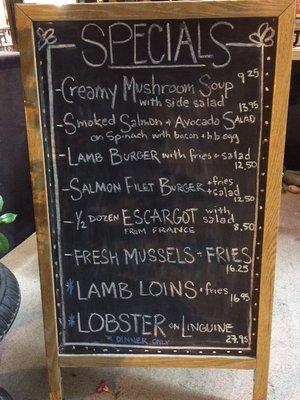 SPECIALS
-Creamy Mushroom Soup 9.25
with side salad 13.75
-Smoked Salmon + Avocado Salad
on Spinach with bacon + h.b egg
-Lamb Burger with fries + salad
12.50
-Salmon Filet Burger +fries
+salad
12.50
-½ dozen Escargot with
from France salad
8.50
-Fresh Mussels + Fries
16.25
*Lamb Loins + fries
16.95
*Lobster on Linguine
* Dinner only 27.95